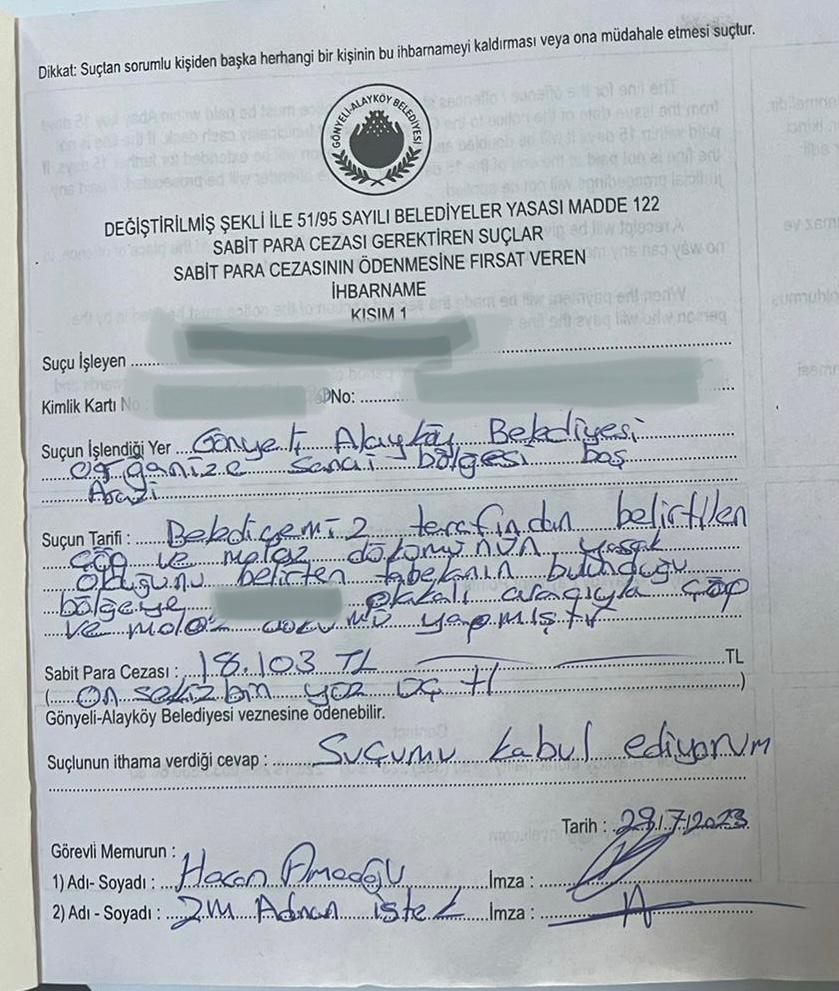 Dikkat: Suçtan sorumlu kişiden başka herhangi bir kişinin bu ihbarnameyi kaldırması veya ona müdahale etmesi suçtur.
GÖNYELİ-ALAYKÖY BELEDİYESİ
DEĞİŞTİRİLMİŞ ŞEKLİ İLE 51/95 SAYILI BELEDİYELER YASASI MADDE 122
SABİT PARA CEZASI GEREKTİREN SUÇLAR
SABİT PARA CEZASININ ÖDENMESİNE FIRSAT VEREN
İHBARNAME
KISIM 1
Suçu İşleyen
Kimlik Kartı No No:
Suçun İşlendiği Yer Gönyeli Alayköy Belediyesi
organize sanai bölgesi boş
Arazi
Suçun Tarifi : Belediyemiz terafından belirtilen
çöp ve moloz dökümünün yasak
olduğunu belirten tabelanın bulunduğu
bölgeye plakalı aracıyla çöp
ve moloz dökümü yapmıştır
Sabit Para Cezası : 18.103 TL TL
(on sekiz bin yüz üç tl)
Gönyeli-Alayköy Belediyesi veznesine ödenebilir.
Suçlunun ithama verdiği cevap : Suçumu kabul ediyorum
Tarih : 28/7/2023
Görevli Memurun :
1) Adı- Soyadı : Hasan İmza :
2) Adı - Soyadı : ZM Adnan istek İmza :